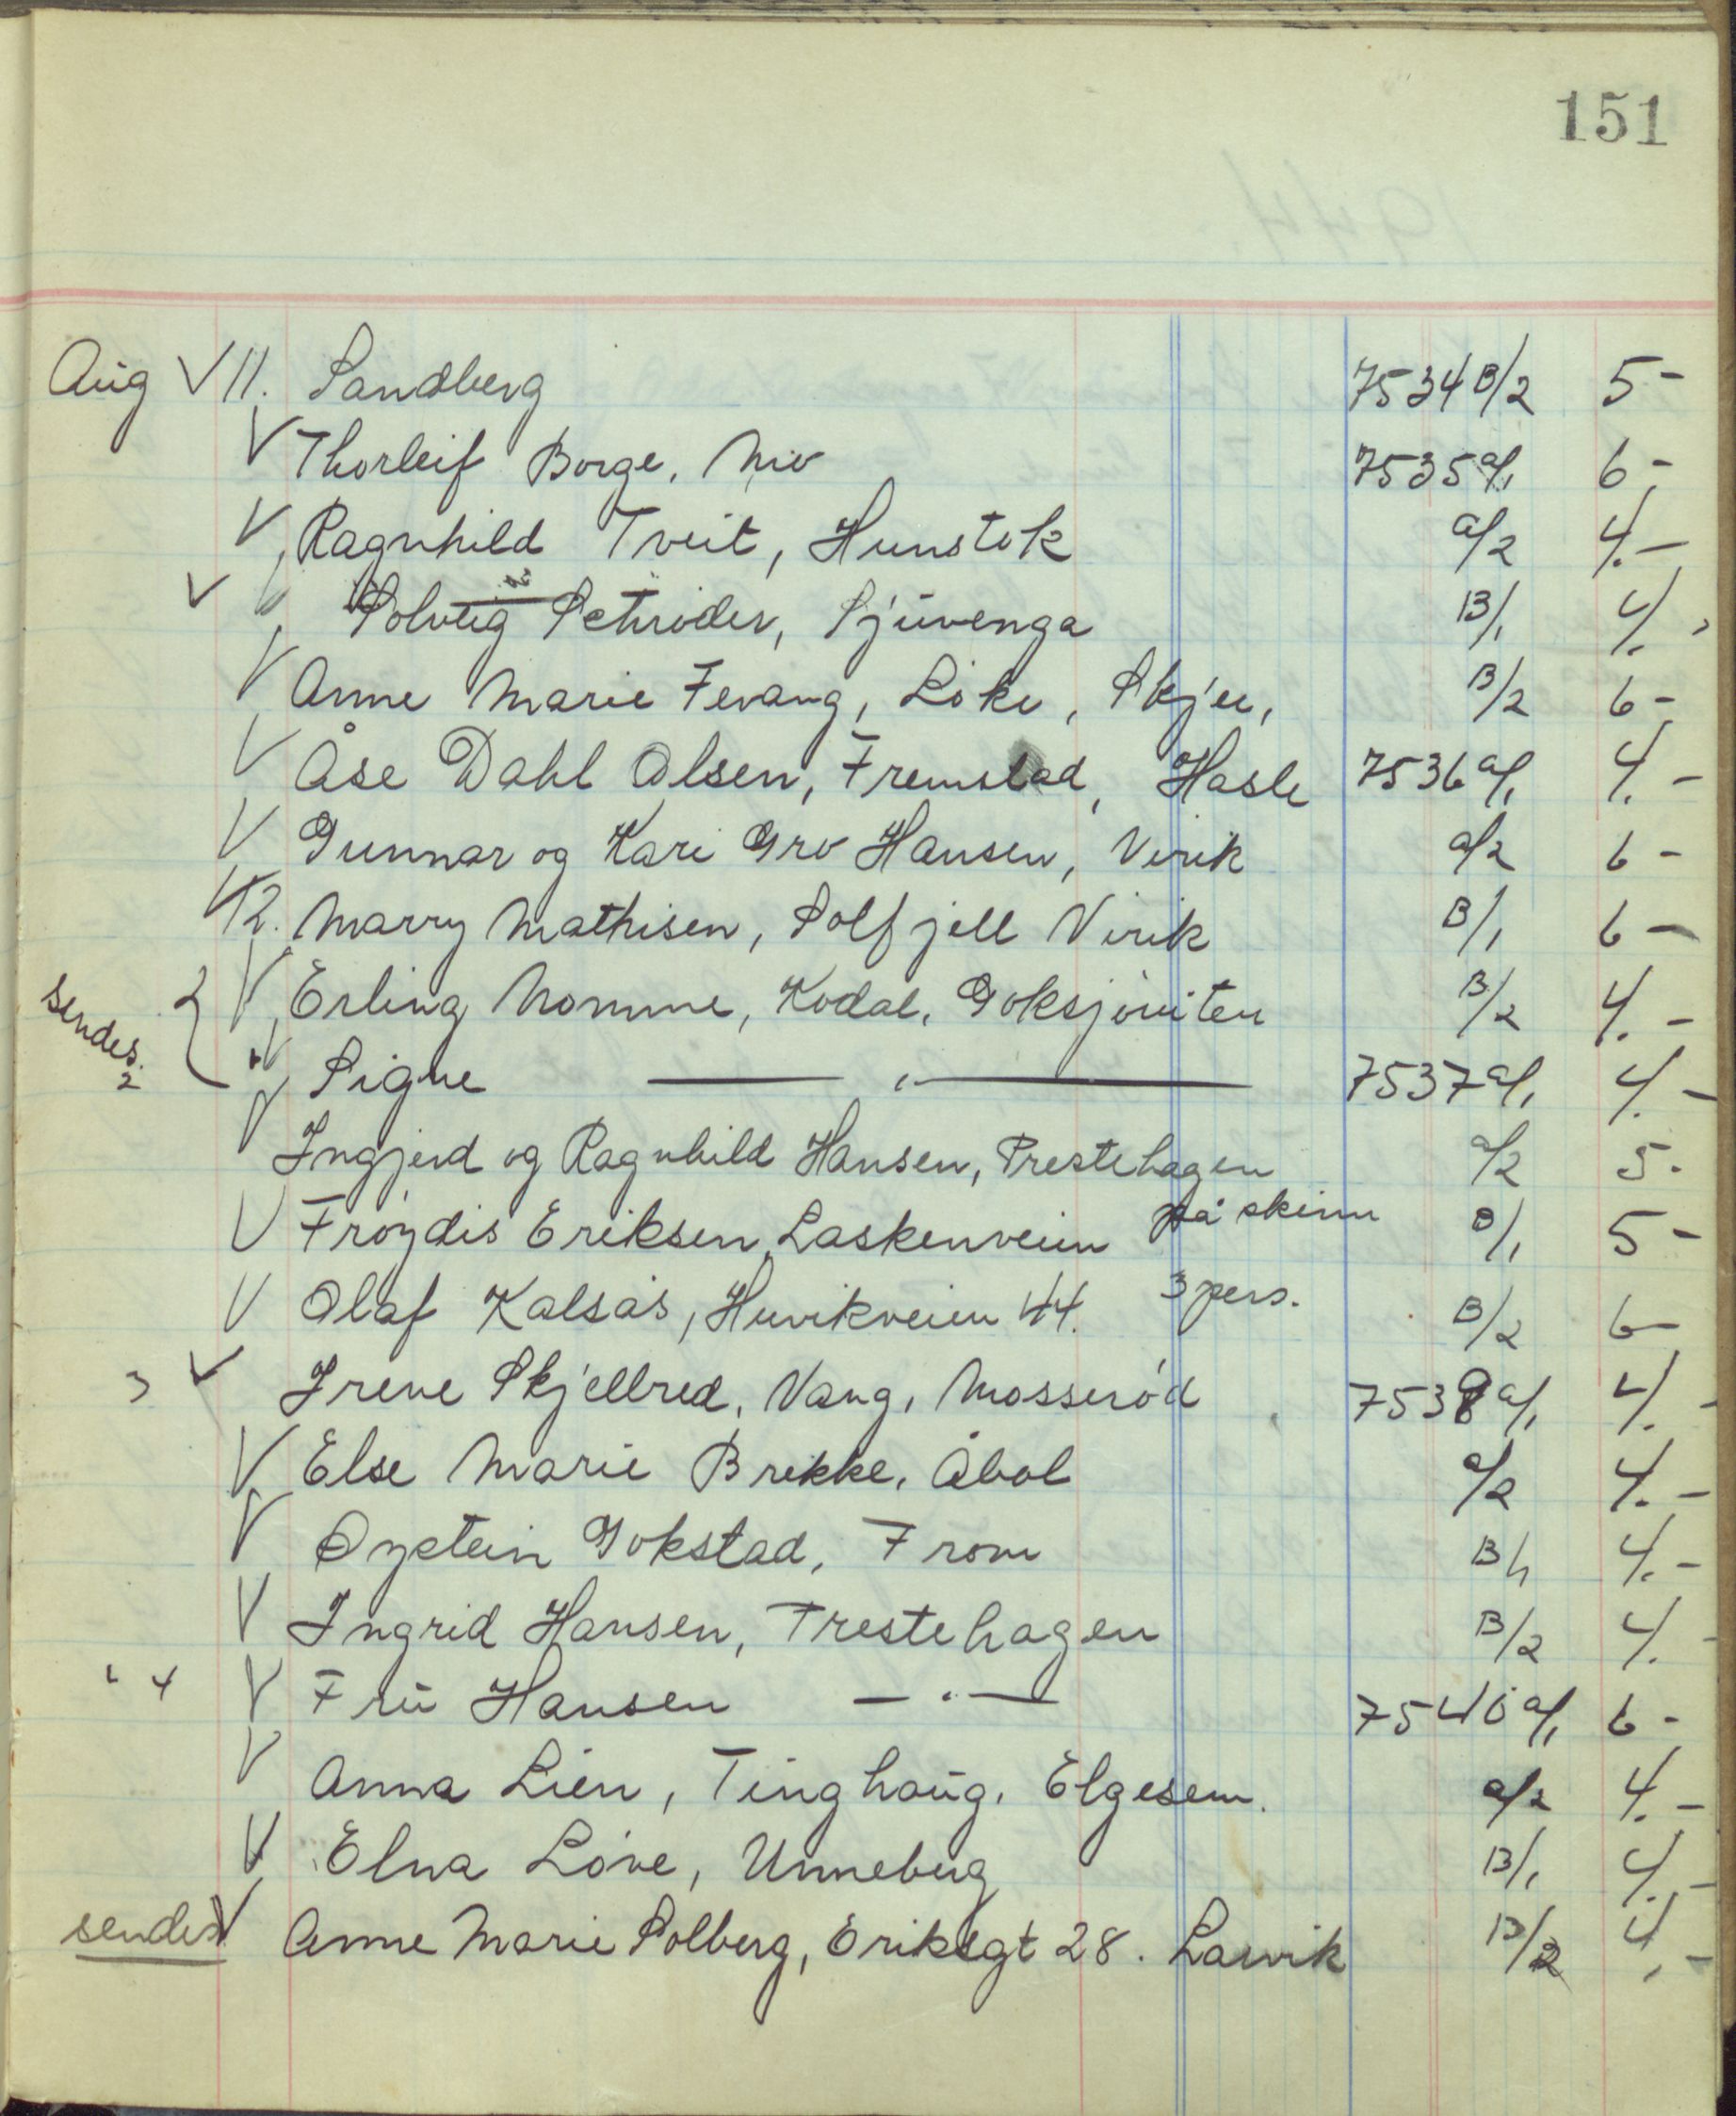 151
Aug V 11. Sandberg 7534 B/2 5-
V Thorleif Borge, Mo 7535 a/1 6-
V Ragnhild Tveit, Hunstok a/2 4.-
V Solveig Schrøder, Sjuvenga B/1 4.-
V Anne Marie Fevang, Løke, Skjee, B/2 6-
V Åse Dahl Olsen, Fremstad, Hasle 7536 a/1 4.-
V Gunnar og Kari Gro Hansen, Virik a/2 6-
V 12. Marry Mathisen, Solfjell Virik B/1 6-
sendes. 2 V Erling Nomme, Kodal, Goksjø B/2 4.-
V Signe — " — 7537 a/1 4.-
V Ingjerd og Ragnhild Hansen, Prestehagen a/2 5.
V Frøydis Eriksen, Laskenveien på skinn B/1 5-
V Olaf Kalsås, Huvikveien 44. 3 pers. B/2 6-
3 V Irene Skjellred, Vang, Mosserød 7538 a/1 4.-
V Else Marie Brekke, Åbol a/2 4.-
V Øystein Gokstad, From B/1 4.-
V Ingrid Hansen, Prestehagen B/2 4.-
4 V Fru Hansen — " — 7540 a/1 6-
V Anna Lien, Tinghaug, Elgesem. a/2 4.-
V Elna Løve, Unneberg B/1 4.-
sendes V Anne Marie Solberg, Eriksgt 28. Larvik B/2 4,-